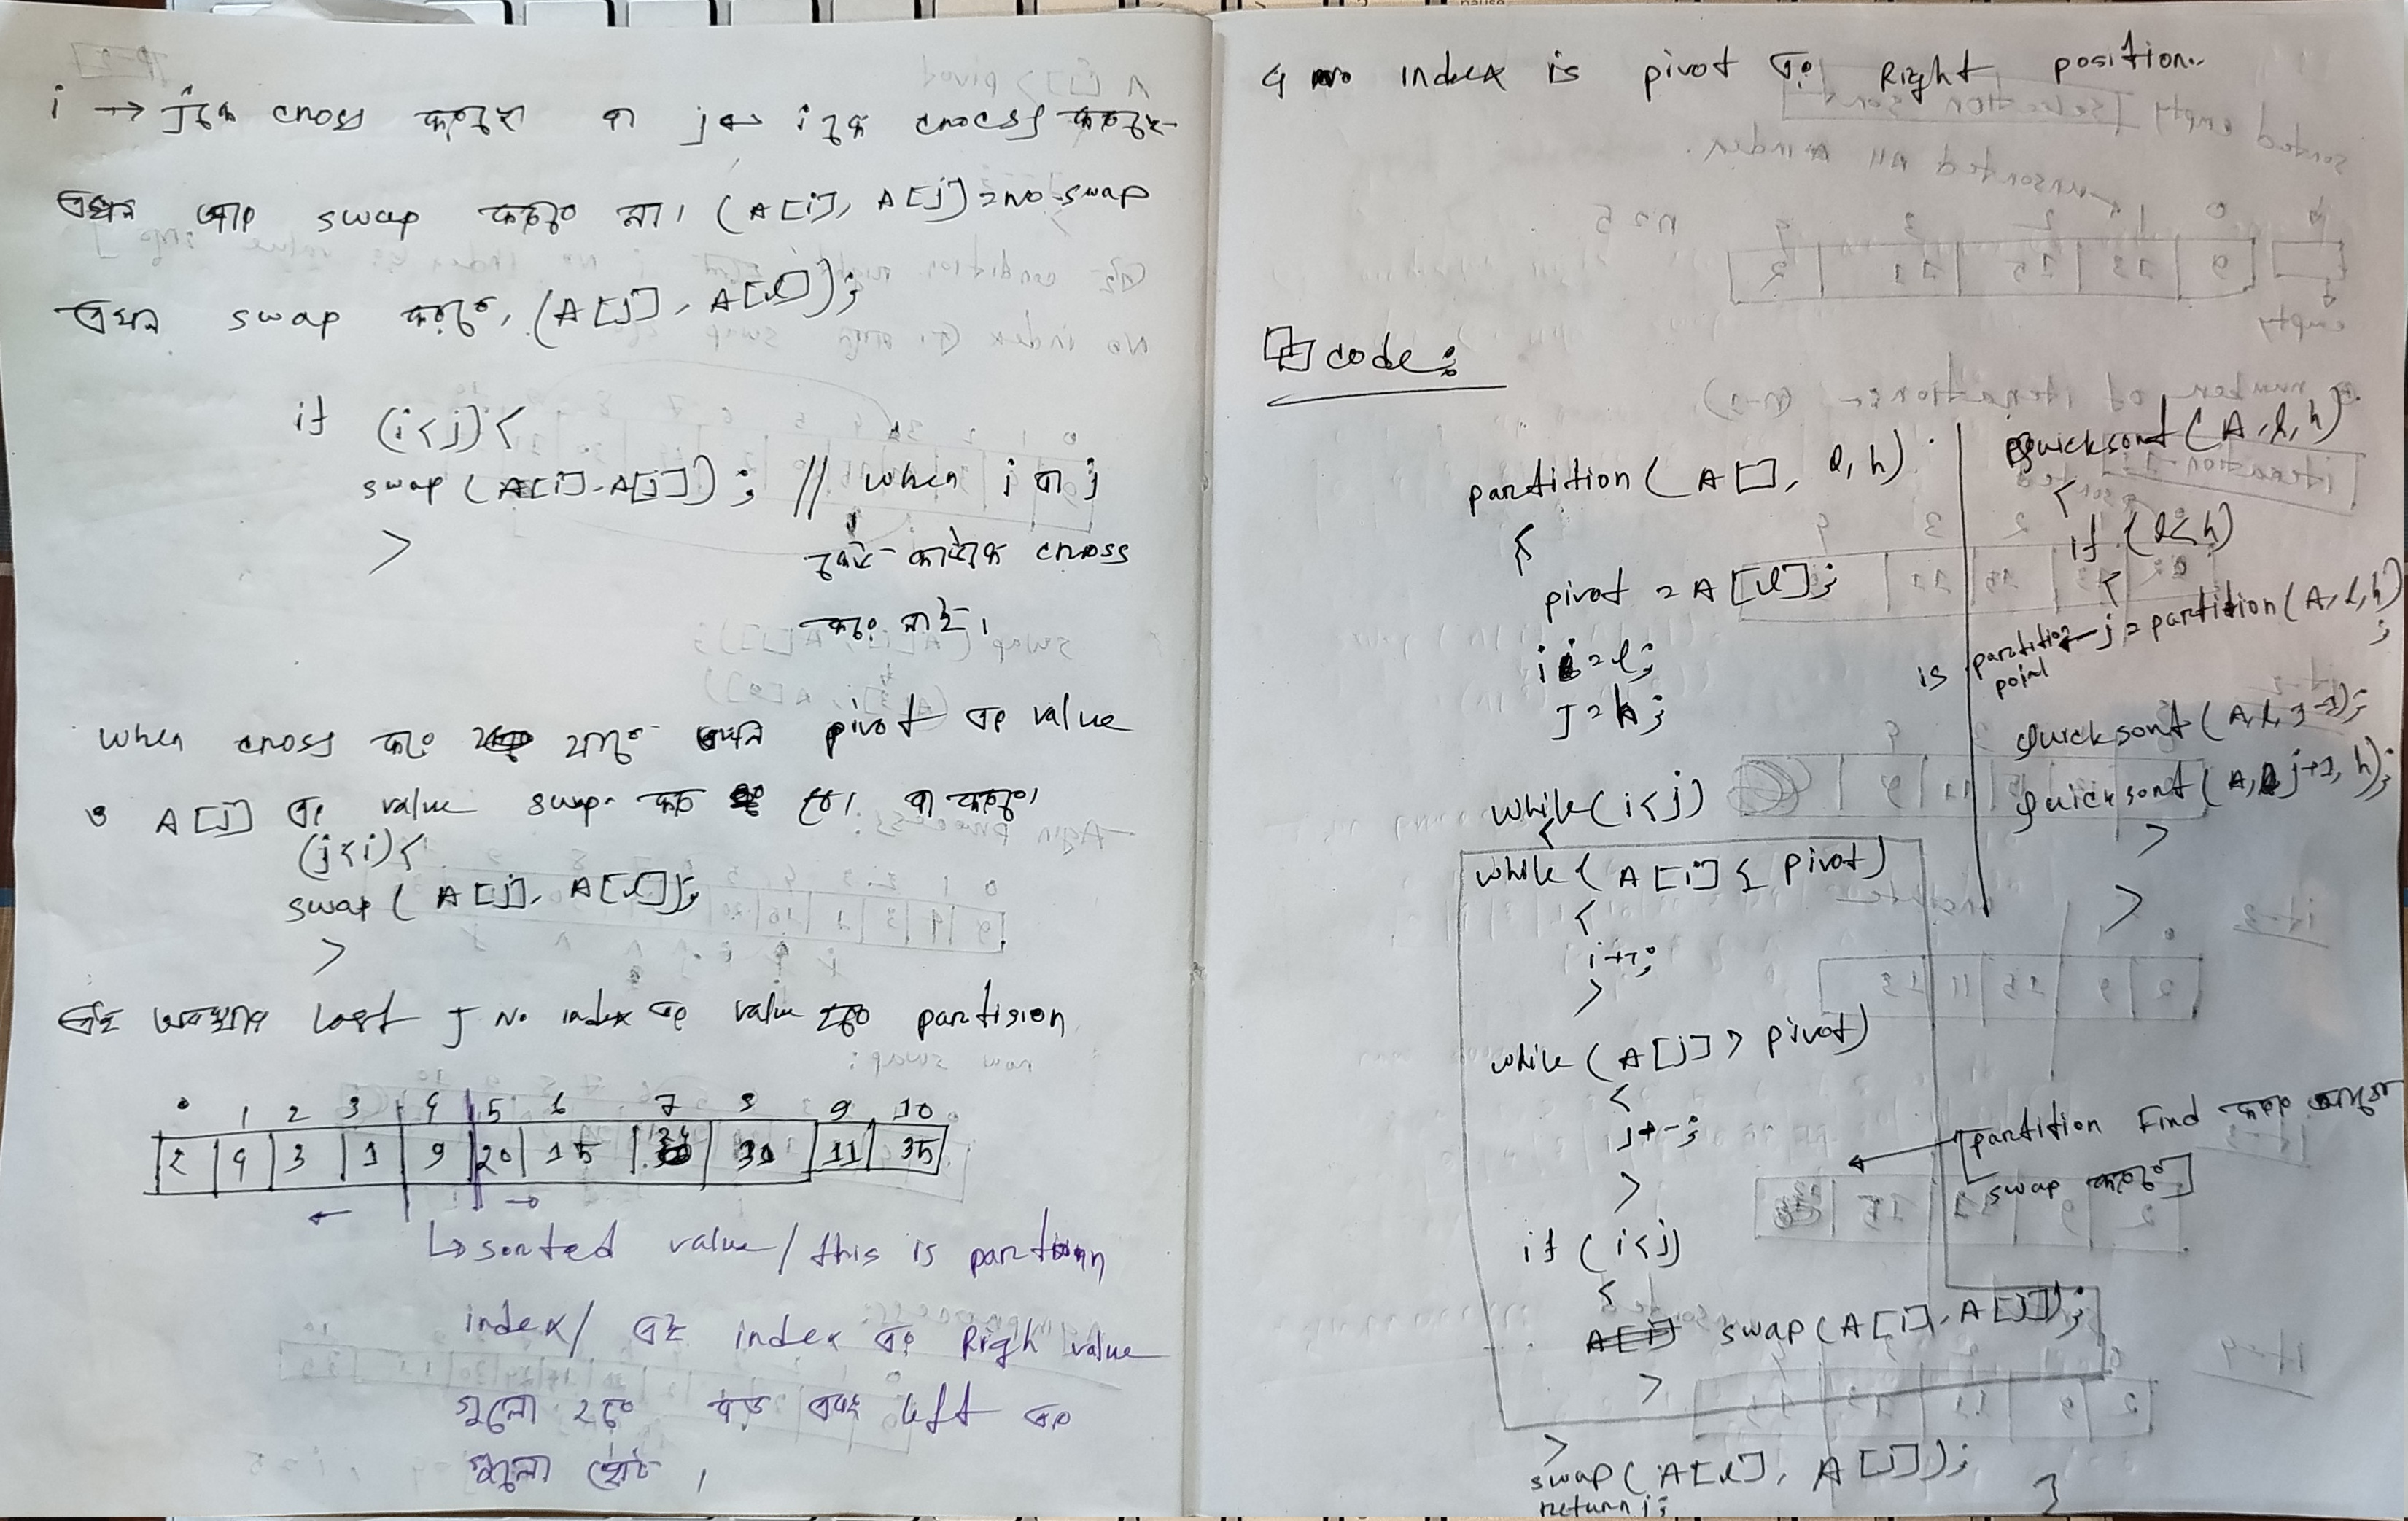 i → j কে cross করেছে বা j ← i কে crocss করেছে
এখন আর swap করবে না। (A[i], A[j]) = no swap
এখন swap করবে, (A[j], A[l]);
if (i<j) {
swap (A[i], A[j]); // when i বা j
কেউ কাউকে cross
করে নাই।
when cross করে যাবে তখন pivot এর value
ও A[j] এর value swap করে
(j<i) {
swap ( A[j], A[l]);
}
এই অবস্থায় last j no index এর value হলো partision
0 1 2 3 4 5 6 7 8 9 10
2 4 3 1 9 20 15 11 35
← →
↳ sorted value / this is partition
index / এই index এর Righ value
গুলো হবে বড় এবং left এর
গুলো ছোট ।
4 no index is pivot এর Right position.
code:
partition ( A[], l, h)
{
pivot = A[l];
i = l;
j = h;
while (i<j)
{
while ( A[i] ≤ pivot)
{
i++;
}
while ( A[j] > pivot)
{
j--;
}
if ( i<j)
{
swap (A[i], A[j]);
}
}
swap ( A[l], A[j]);
return j;
}
quicksort ( A, l, h)
{
if (l<h)
{
j = partition ( A, l, h)
;
is partition point
quicksort ( A, l, j-1);
quicksort ( A, j+1, h);
}
}
[partition Find করার
swap করবে]